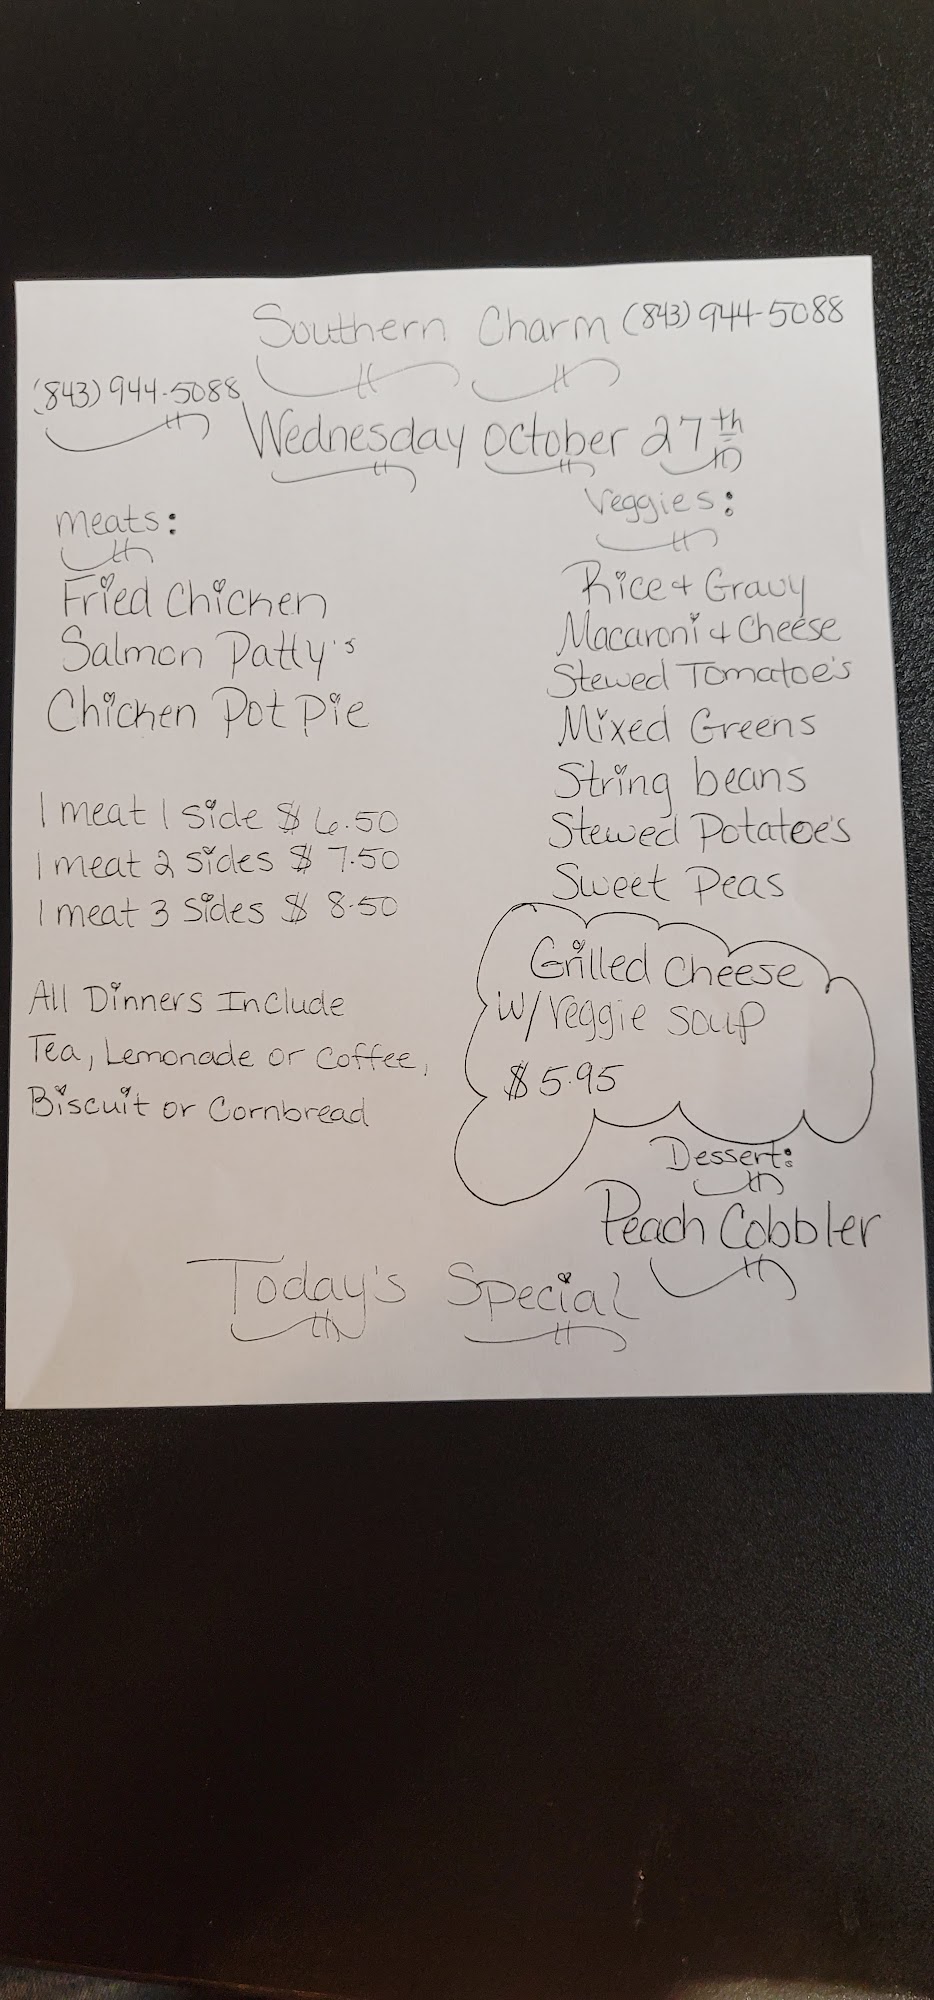 Southern Charm (843) 944-5088
(843) 944-5088
Wednesday October 27th
Meats:
Fried Chicken
Salmon Patty's
Chicken Pot Pie
1 meat 1 side $6.50
1 meat 2 sides $7.50
1 meat 3 sides $8.50
All Dinners Include
Tea, Lemonade or Coffee,
Biscuit or Cornbread
Veggies:
Rice + Gravy
Macaroni + Cheese
Stewed Tomatoe's
Mixed Greens
String beans
Stewed Potatoe's
Sweet Peas
Grilled Cheese
W/Veggie Soup
$5.95
Dessert:
Peach Cobbler
Today's Special